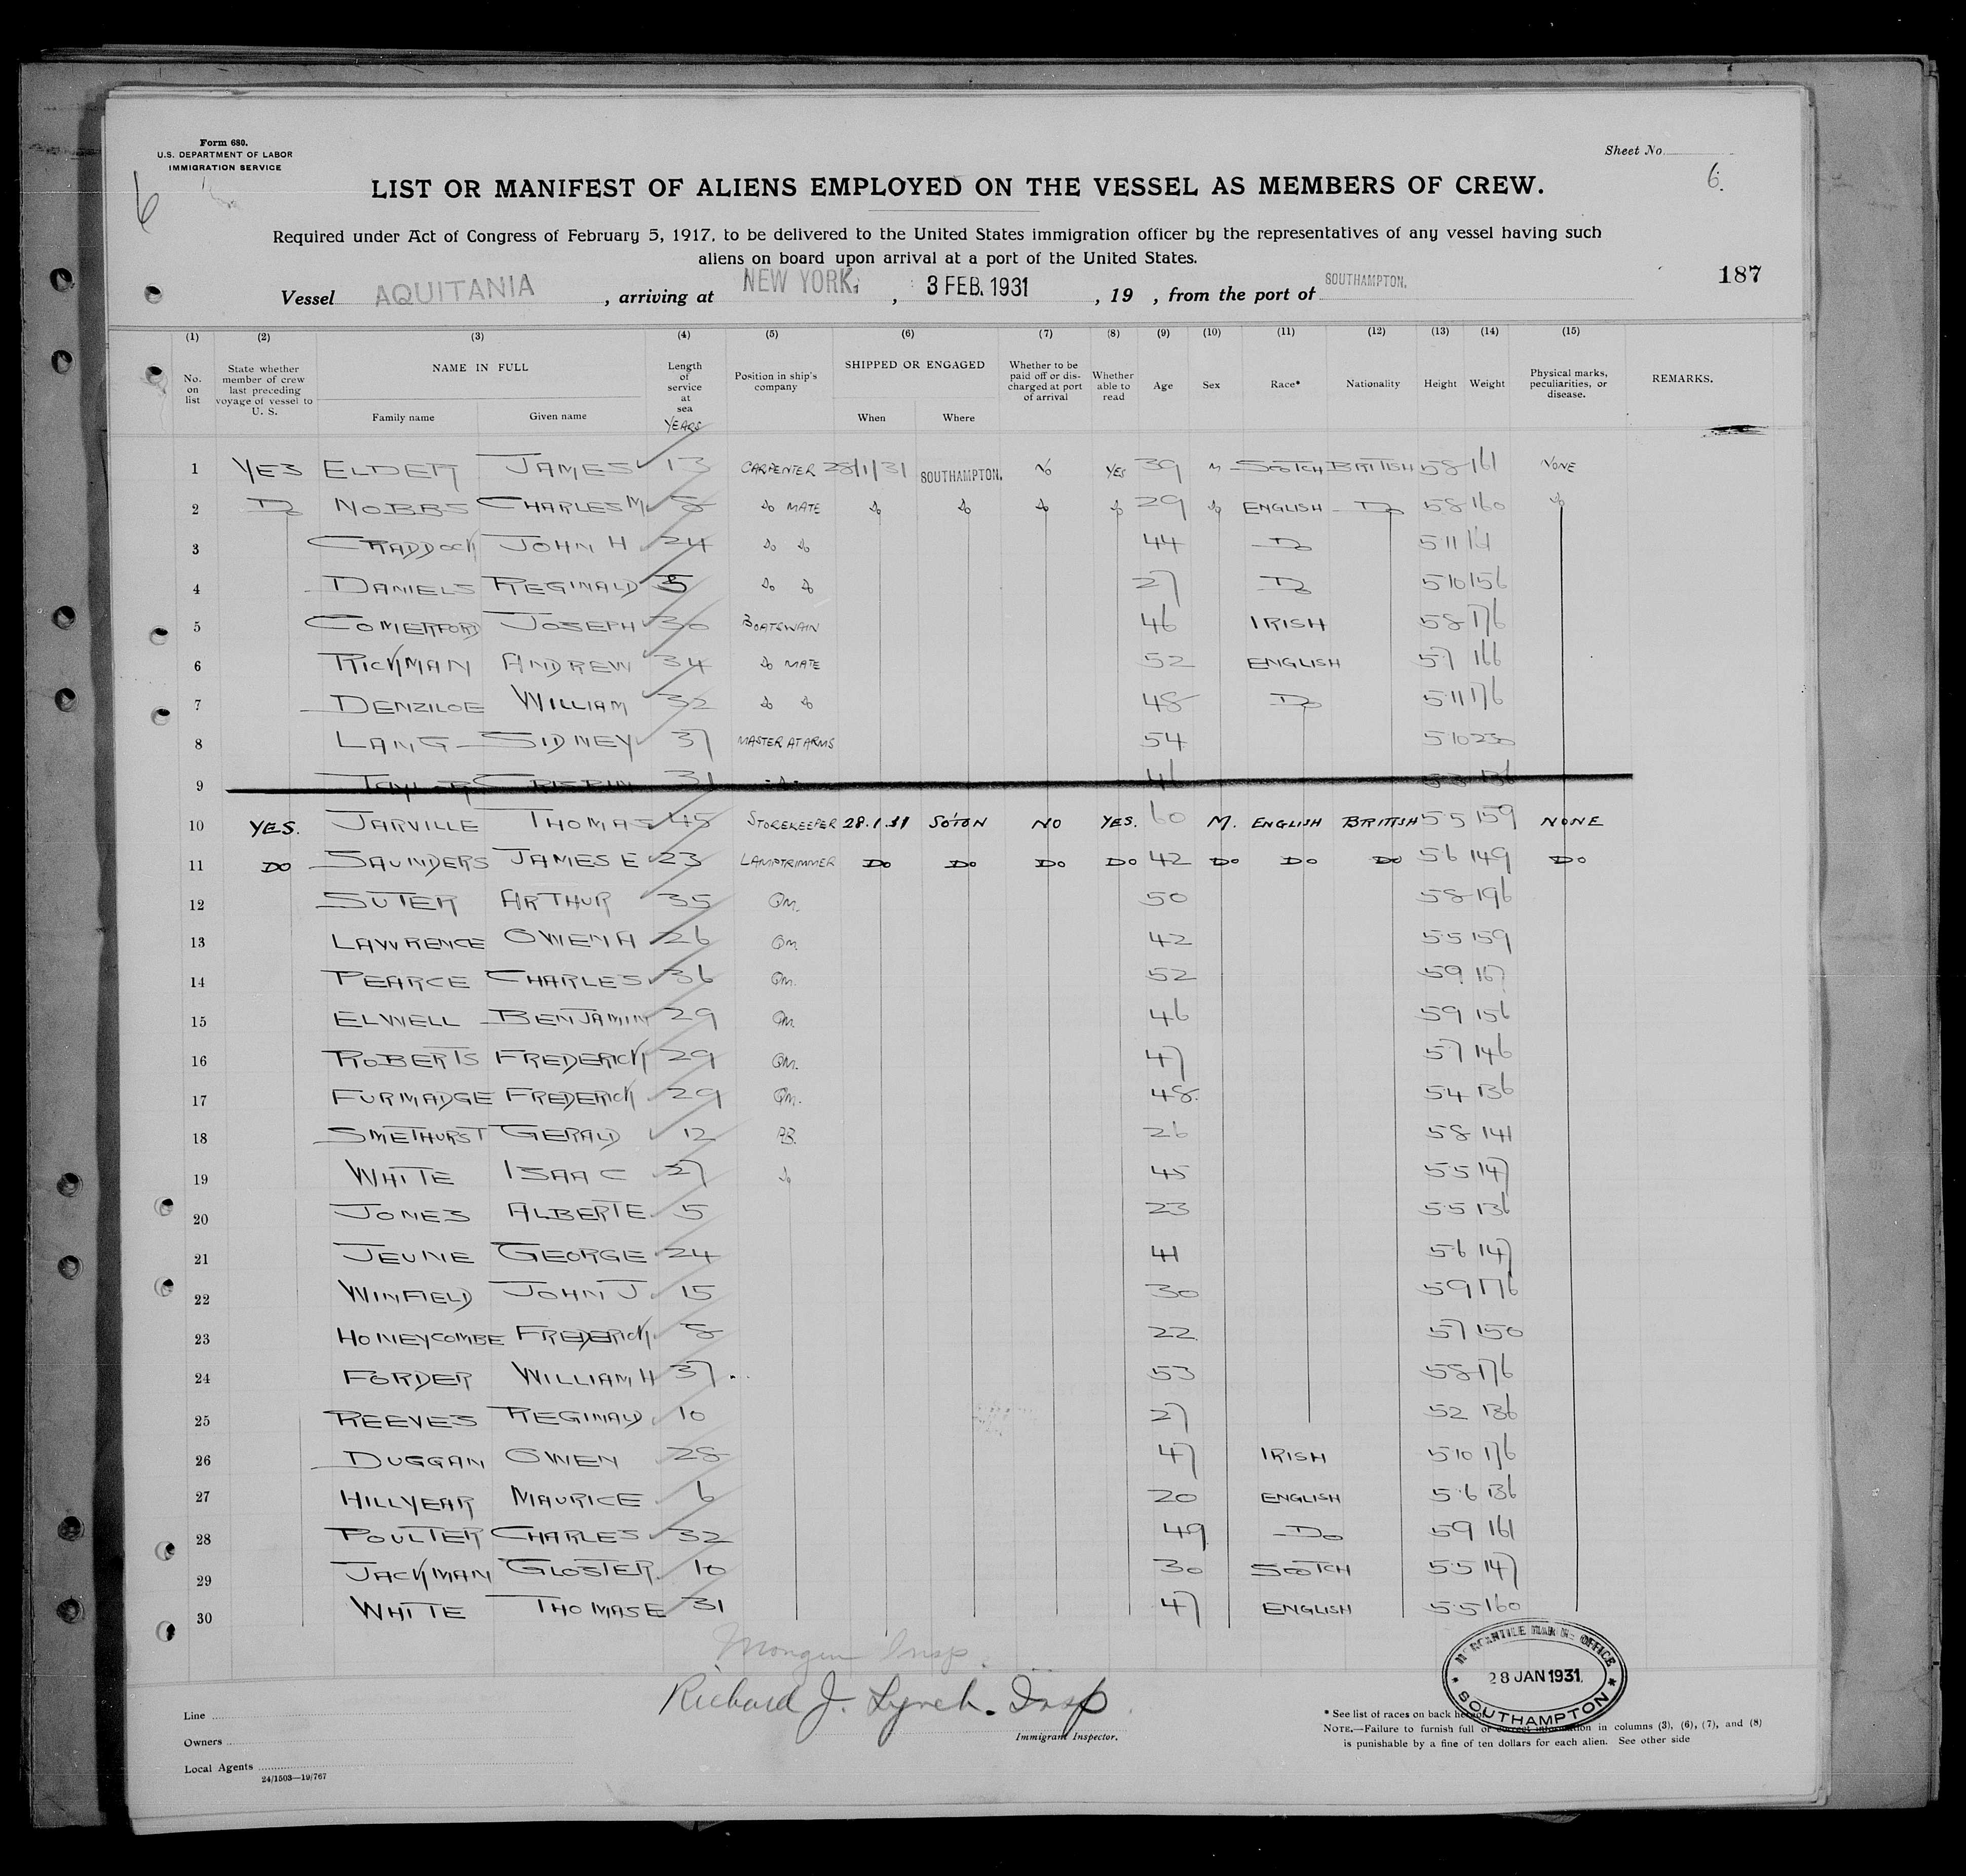 Form 680.
U.S. DEPARTMENT OF LABOR
IMMIGRATION SERVICE
Sheet No.
6
6.
LIST OR MANIFEST OF ALIENS EMPLOYED ON THE VESSEL AS MEMBERS OF CREW.
Required under Act of Congress of February 5, 1917, to be delivered to the United States immigration officer by the representatives of any vessel having such
aliens on board upon arrival at a port of the United States.
187
Vessel AQUITANIA, arriving at NEW YORK, 3 FEB. 1931, 19 , from the port of SOUTHAMPTON.
(1) (2) (3) (4) (5) (6) (7) (8) (9) (10) (11) (12) (13) (14) (15)
No. on list State whether member of crew last preceding voyage of vessel to U. S. NAME IN FULL Family name Given name Length of service at sea YEARS Position in ship's company SHIPPED OR ENGAGED When Where Whether to be paid off or discharged at port of arrival Whether able to read Age Sex Race* Nationality Height Weight Physical marks, peculiarities, or disease. REMARKS.
1 YES ELDER JAMES 13 CARPENTER 28/1/31 SOUTHAMPTON. NO YES 39 M SCOTCH BRITISH 5 8 161 NONE
2 Do NOBBS CHARLES M 8 do MATE do do do do 29 do ENGLISH Do 5 8 160 do
3 CRADDOCK JOHN H 24 do do 44 Do 5 11 161
4 DANIELS REGINALD 5 do do 27 Do 5 10 156
5 COMERFORD JOSEPH 30 BOATSWAIN 46 IRISH 5 8 176
6 RICKMAN ANDREW 34 do MATE 52 ENGLISH 5 7 166
7 DENZILOE WILLIAM 32 do do 48 Do 5 11 176
8 LANG SIDNEY 37 MASTER AT ARMS 54 5 10 230
9 TAYLOR CRISPIN 31 do 46 136
10 YES. JARVILLE THOMAS 45 STOREKEEPER 28.1.31 SO'TON NO YES. 60 M. ENGLISH BRITISH 5 5 159 NONE
11 DO SAUNDERS JAMES E 23 LAMPTRIMMER DO DO DO DO 42 DO DO DO 5 6 149 DO
12 SUTER ARTHUR 35 QM. 50 5 8 196
13 LAWRENCE OWEN A 26 QM 42 5 5 159
14 PEARCE CHARLES 36 QM. 52 5 9 167
15 ELWELL BENJAMIN 29 QM. 46 5 9 156
16 ROBERTS FREDERICK 29 QM. 47 5 7 146
17 FURMADGE FREDERICK 29 QM. 48 5 4 136
18 SMETHURST GERALD 12 AB. 26 5 8 141
19 WHITE ISAAC 27 do 45 5 5 147
20 JONES ALBERT E. 5 23 5 5 136
21 JEUNE GEORGE 24 41 5 6 147
22 WINFIELD JOHN J 15 30 5 9 176
23 HONEYCOMBE FREDERICK 8 22 5 7 150
24 FORDER WILLIAM H 37 53 5 8 176
25 REEVES REGINALD 10 27 5 2 136
26 DUGGAN OWEN 28 47 IRISH 5 10 176
27 HILLYEAR MAURICE 6 20 ENGLISH 5 6 136
28 POULTER CHARLES 32 49 Do 5 9 161
29 JACKMAN GLOSTER. 10 30 SCOTCH 5 5 147
30 WHITE THOMAS E 31 47 ENGLISH 5 5 160
Insp.
Richard J. Lynch. Insp
Immigrant Inspector.
MERCANTILE MARINE OFFICE
28 JAN 1931.
SOUTHAMPTON
Line
Owners
Local Agents
24/1503—19/767
* See list of races on back hereof.
NOTE.—Failure to furnish full or correct information in columns (3), (6), (7), and (8)
is punishable by a fine of ten dollars for each alien. See other side